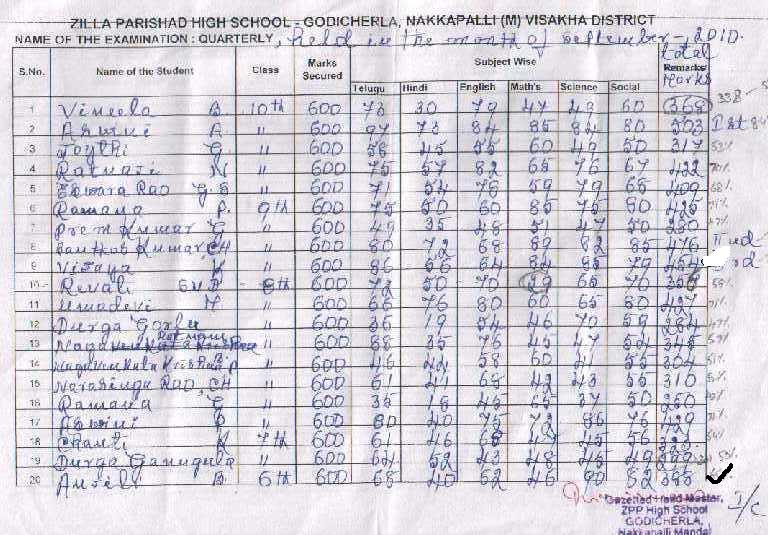 ZILLA PARISHAD HIGH SCHOOL - GODICHERLA, NAKKAPALLI (M) VISAKHA DISTRICT
NAME OF THE EXAMINATION : QUARTERLY, held in the month of september - 2010.
S.No. Name of the Student Class Marks Secured Subject Wise total Remarks Marks
Telugu Hindi English Math's Science Social
1 Vineela B. 10th 600 73 30 79 47 49 60 368 338
2 A. " 600 97 73 84 85 84 80 503 Ist
3 Joythi G. " 600 58 45 55 60 49 50 317 53%
4 Ratnaji N " 600 75 57 82 65 76 67 422 70%
5 Eswara Rao G.S " 600 71 54 78 59 79 68 409 68%
6 Ramana P. 9th 600 75 50 60 85 75 80 425 71%
7 Prem Kumar G " 600 49 35 48 51 47 50 280 47%
8 Kumar CH " 600 80 72 68 89 82 85 476 IInd
9 Vijaya K " 600 86 66 64 84 85 79 454 rd
10 Revati G.V.P. 8th 600 72 50 70 29 65 70 356 59%
11 Umadevi Y " 600 66 76 80 60 65 80 427 71%
12 Durga " 600 36 19 54 46 70 59 284 47%
13 " 600 88 35 76 45 47 54 345
14 " 600 46 44 58 60 41 55 304 51%
15 Narasinga Rao, CH " 600 61 41 68 42 43 55 310
16 Ramana G " 600 35 18 45 65 37 50 250
17 Aswini P " 600 80 40 75 72 86 76 429
18 Chanti K 7th 600 61 46 68 49 45 56
19 Durga Ganugula " 600 64 52 43 48 45 49
20 B. 6th 600 68 40 62 46 90 82
I/C
Gazetted Head Master,
ZPP High School
GODICHERLA,
Nakkapalli Mandal